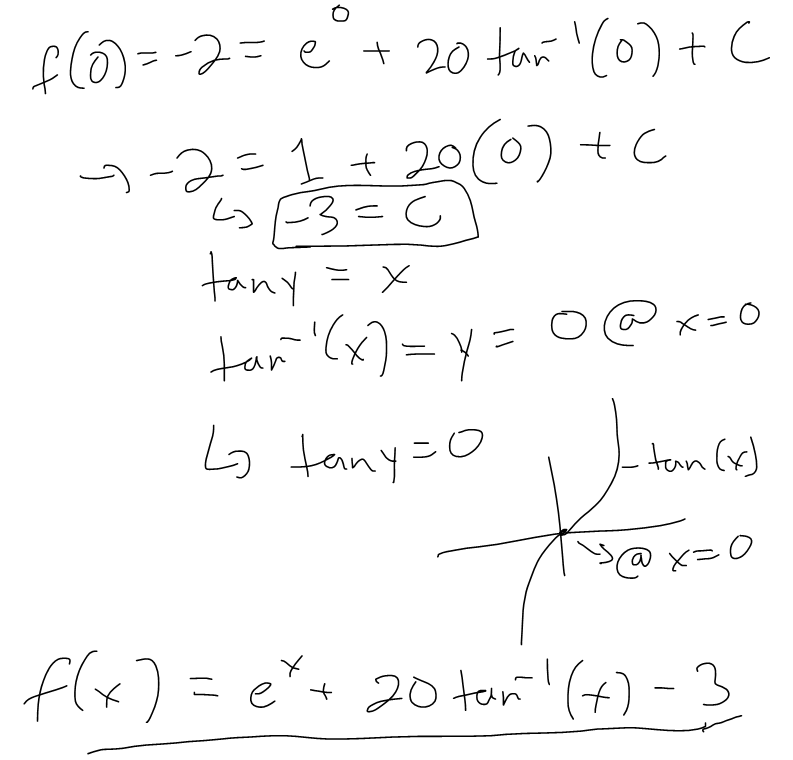 f(0) = -2 = e⁰ + 20 tan⁻¹(0) + C
→ -2 = 1 + 20(0) + C
↳ -3 = C
tan y = x
tan⁻¹(x) = y = 0 @ x=0
↳ tan y = 0
tan(x)
@ x=0
f(x) = eˣ + 20 tan⁻¹(x) - 3